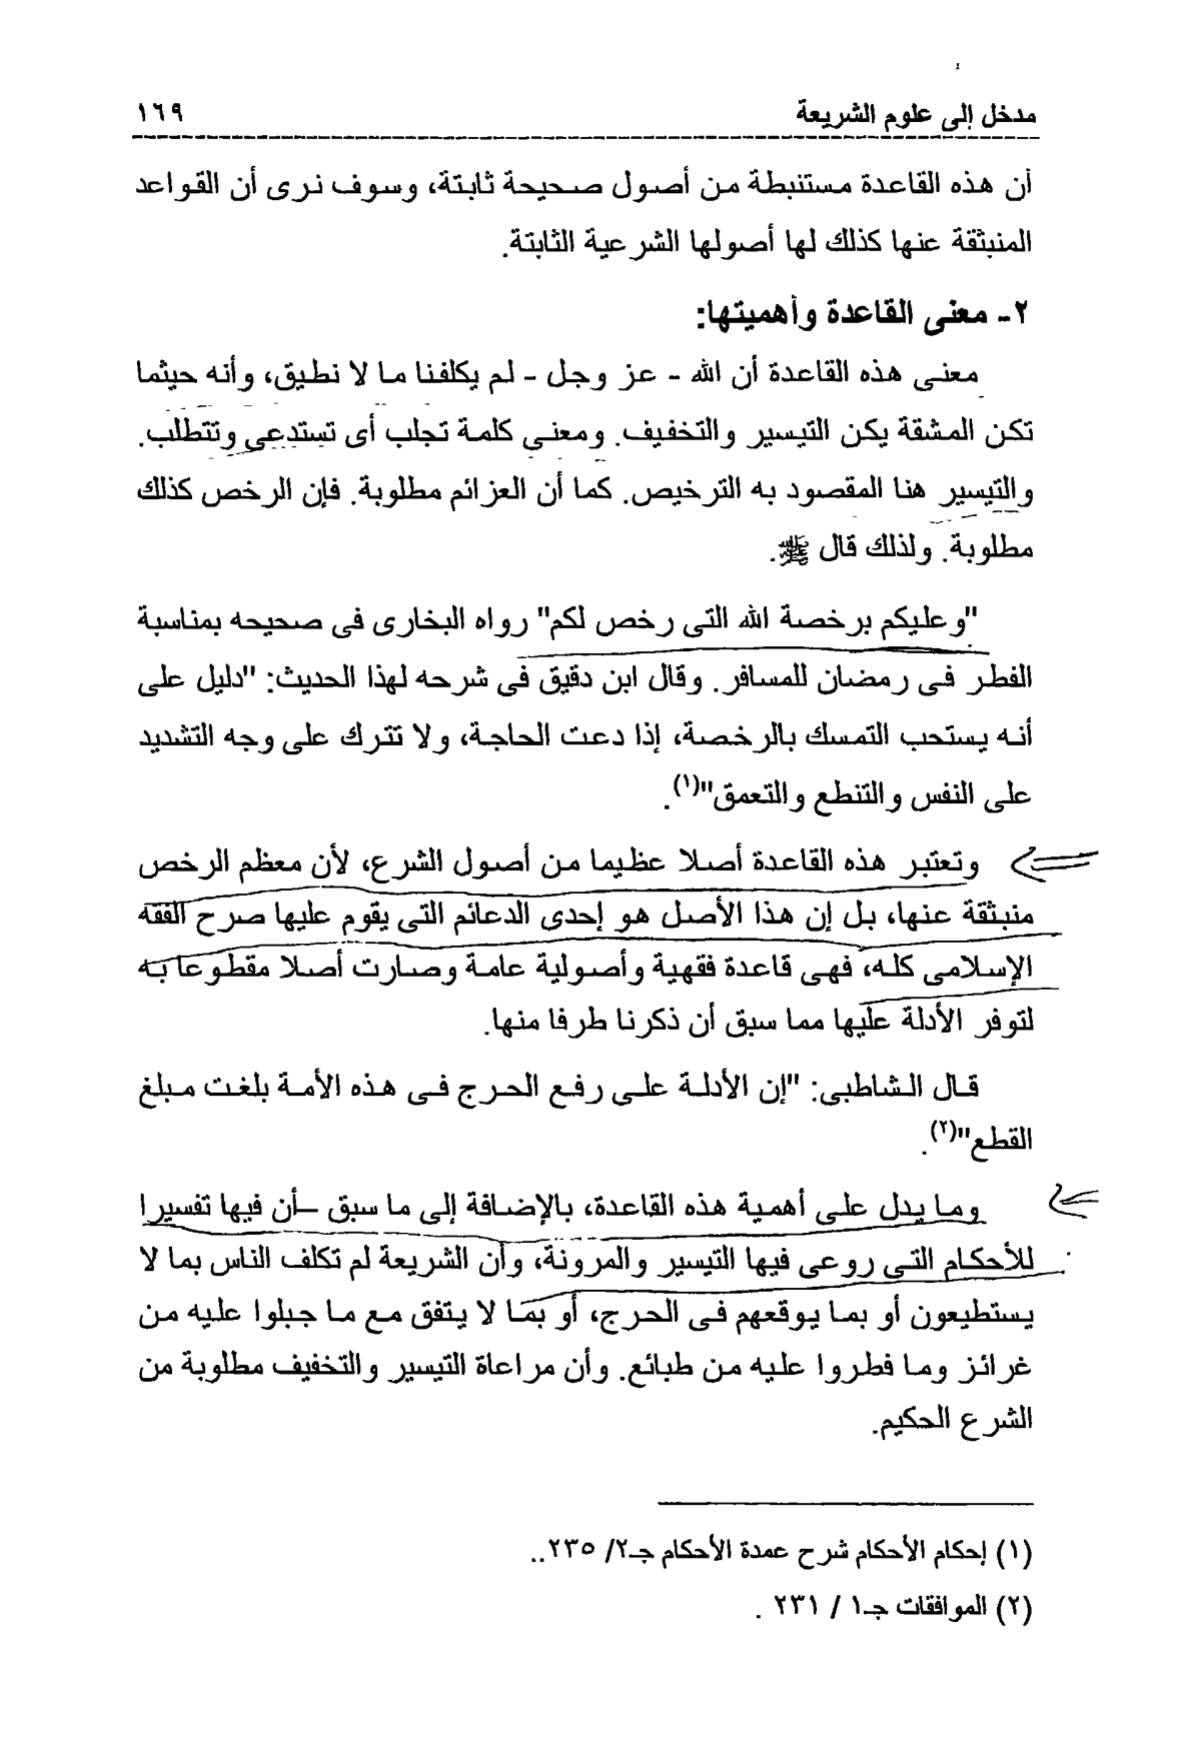 مدخل إلى علوم الشريعة ١٦٩
أن هذه القاعدة مستنبطة من أصول صحيحة ثابتة، وسوف نرى أن القواعد
المنبثقة عنها كذلك لها أصولها الشرعية الثابتة.
٢- معنى القاعدة وأهميتها:
معنى هذه القاعدة أن الله - عز وجل - لم يكلفنا ما لا نطيق، وأنه حيثما
تكن المشقة يكن التيسير والتخفيف. ومعنى كلمة تجلب أى تستدعى وتتطلب.
والتيسير هنا المقصود به الترخيص. كما أن العزائم مطلوبة. فإن الرخص كذلك
مطلوبة. ولذلك قال ﷺ.
"وعليكم برخصة الله التى رخص لكم" رواه البخارى فى صحيحه بمناسبة
الفطر فى رمضان للمسافر. وقال ابن دقيق فى شرحه لهذا الحديث: "دليل على
أنه يستحب التمسك بالرخصة، إذا دعت الحاجة، ولا تترك على وجه التشديد
على النفس والتنطع والتعمق"(١).
وتعتبر هذه القاعدة أصلا عظيما من أصول الشرع، لأن معظم الرخص
منبثقة عنها، بل إن هذا الأصل هو إحدى الدعائم التى يقوم عليها صرح الفقه
الإسلامى كله، فهى قاعدة فقهية وأصولية عامة وصارت أصلا مقطوعا به
لتوفر الأدلة عليها مما سبق أن ذكرنا طرفا منها.
قال الشاطبى: "إن الأدلة على رفع الحرج فى هذه الأمة بلغت مبلغ
القطع"(٢).
وما يدل على أهمية هذه القاعدة، بالإضافة إلى ما سبق –أن فيها تفسيرا
للأحكام التى روعى فيها التيسير والمرونة، وأن الشريعة لم تكلف الناس بما لا
يستطيعون أو بما يوقعهم فى الحرج، أو بما لا يتفق مع ما جبلوا عليه من
غرائز وما فطروا عليه من طبائع. وأن مراعاة التيسير والتخفيف مطلوبة من
الشرع الحكيم.
(١) إحكام الأحكام شرح عمدة الأحكام جـ٢/ ٢٣٥..
(٢) الموافقات جـ١ / ٢٣١ .